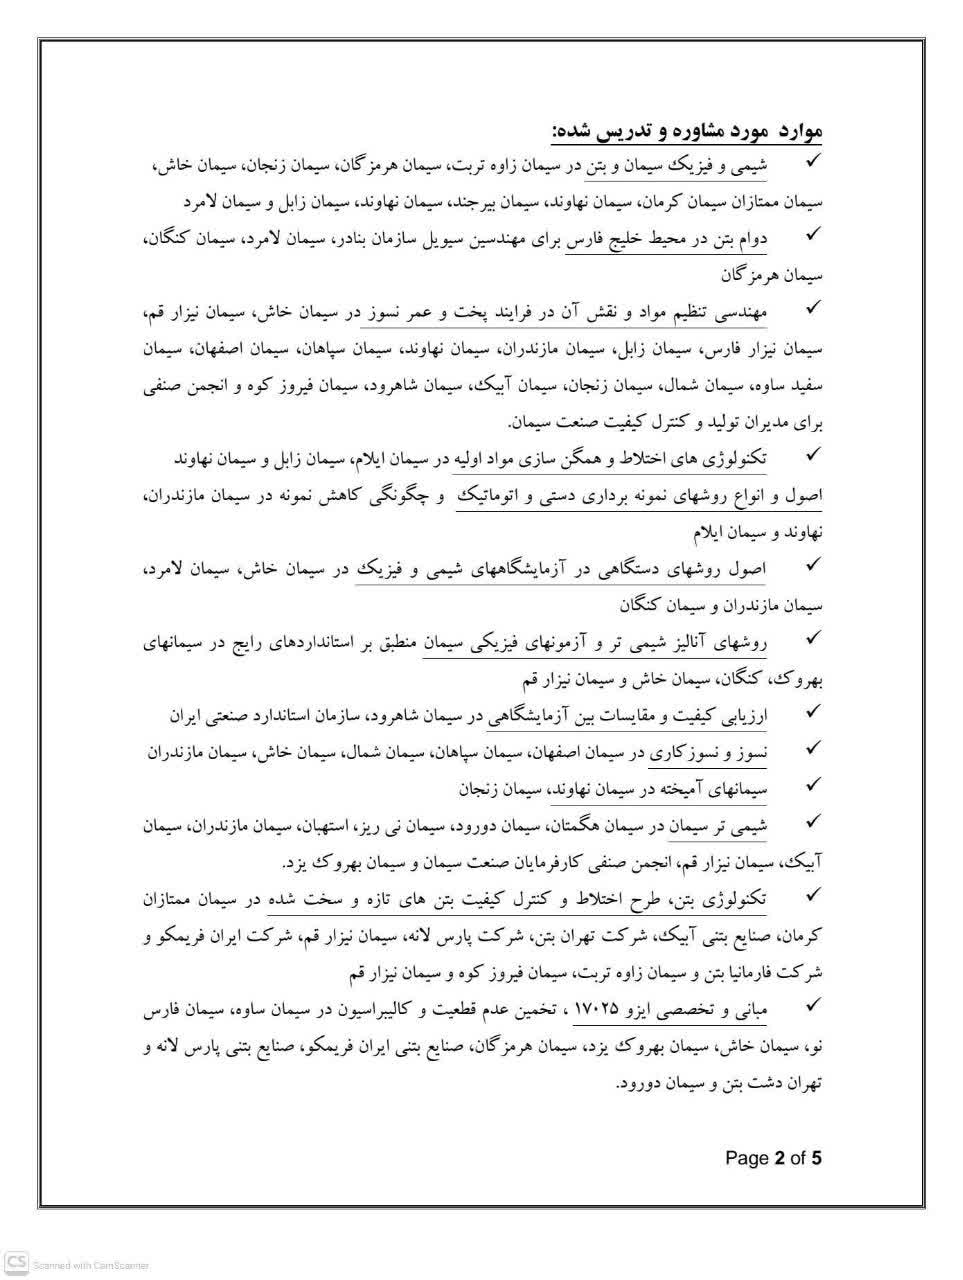 موارد مورد مشاوره و تدریس شده:
✓ شیمی و فیزیک سیمان و بتن در سیمان زاوه تربت، سیمان هرمزگان، سیمان زنجان، سیمان خاش،
سیمان ممتازان سیمان کرمان، سیمان نهاوند، سیمان بیرجند، سیمان نهاوند، سیمان زابل و سیمان لامرد
✓ دوام بتن در محیط خلیج فارس برای مهندسین سیویل سازمان بنادر، سیمان لامرد، سیمان کنگان،
سیمان هرمزگان
✓ مهندسی تنظیم مواد و نقش آن در فرایند پخت و عمر نسوز در سیمان خاش، سیمان نیزار قم،
سیمان نیزار فارس، سیمان زابل، سیمان مازندران، سیمان نهاوند، سیمان سپاهان، سیمان اصفهان، سیمان
سفید ساوه، سیمان شمال، سیمان زنجان، سیمان آبیک، سیمان شاهرود، سیمان فیروز کوه و انجمن صنفی
برای مدیران تولید و کنترل کیفیت صنعت سیمان.
✓ تکنولوژی های اختلاط و همگن سازی مواد اولیه در سیمان ایلام، سیمان زابل و سیمان نهاوند
اصول و انواع روشهای نمونه برداری دستی و اتوماتیک و چگونگی کاهش نمونه در سیمان مازندران،
نهاوند و سیمان ایلام
✓ اصول روشهای دستگاهی در آزمایشگاههای شیمی و فیزیک در سیمان خاش، سیمان لامرد،
سیمان مازندران و سیمان کنگان
✓ روشهای آنالیز شیمی تر و آزمونهای فیزیکی سیمان منطبق بر استانداردهای رایج در سیمانهای
بهروک، کنگان، سیمان خاش و سیمان نیزار قم
✓ ارزیابی کیفیت و مقایسات بین آزمایشگاهی در سیمان شاهرود، سازمان استاندارد صنعتی ایران
✓ نسوز و نسوزکاری در سیمان اصفهان، سیمان سپاهان، سیمان شمال، سیمان خاش، سیمان مازندران
✓ سیمانهای آمیخته در سیمان نهاوند، سیمان زنجان
✓ شیمی تر سیمان در سیمان هگمتان، سیمان دورود، سیمان نی ریز، استهبان، سیمان مازندران، سیمان
آبیک، سیمان نیزار قم، انجمن صنفی کارفرمایان صنعت سیمان و سیمان بهروک یزد.
✓ تکنولوژی بتن، طرح اختلاط و کنترل کیفیت بتن های تازه و سخت شده در سیمان ممتازان
کرمان، صنایع بتنی آبیک، شرکت تهران بتن، شرکت پارس لانه، سیمان نیزار قم، شرکت ایران فریمکو و
شرکت فارمانیا بتن و سیمان زاوه تربت، سیمان فیروز کوه و سیمان نیزار قم
✓ مبانی و تخصصی ایزو ۱۷۰۲۵ ، تخمین عدم قطعیت و کالیبراسیون در سیمان ساوه، سیمان فارس
نو، سیمان خاش، سیمان بهروک یزد، سیمان هرمزگان، صنایع بتنی ایران فریمکو، صنایع بتنی پارس لانه و
تهران دشت بتن و سیمان دورود.
Page 2 of 5
CS Scanned with CamScanner